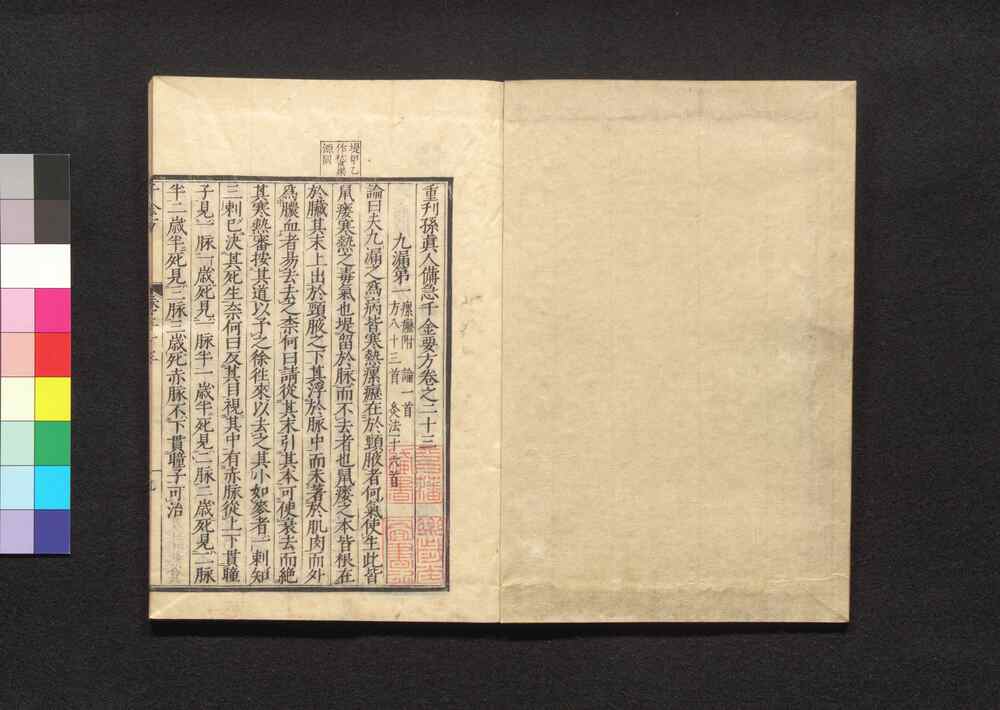 重刋孫眞人備急千金要方卷之二十三
九漏第一
瘰癧附　論一首
方八十三首　灸法十六首
論曰夫九漏之爲病皆寒熱瘰癧在於頸腋者何氣使生此皆
鼠瘻寒熱之毒氣也堤留於脉而不去者也鼠瘻之本皆根在
於臟其末上出於頸腋之下其浮於脉中而未著於肌肉而外
爲膿血者易去去之柰何曰請從其末引其本可使衰去而絶
其寒熱審按其道以予之徐往來以去之其小如麥者一刺知
三刺已决其死生奈何曰反其目視其中有赤脉從上下貫瞳
子見一脉一歳死見一脉半一歳半死見二脉二歳死見二脉
半二歳半死見三脉三歳死赤脉不下貫瞳子可治
堤甲乙